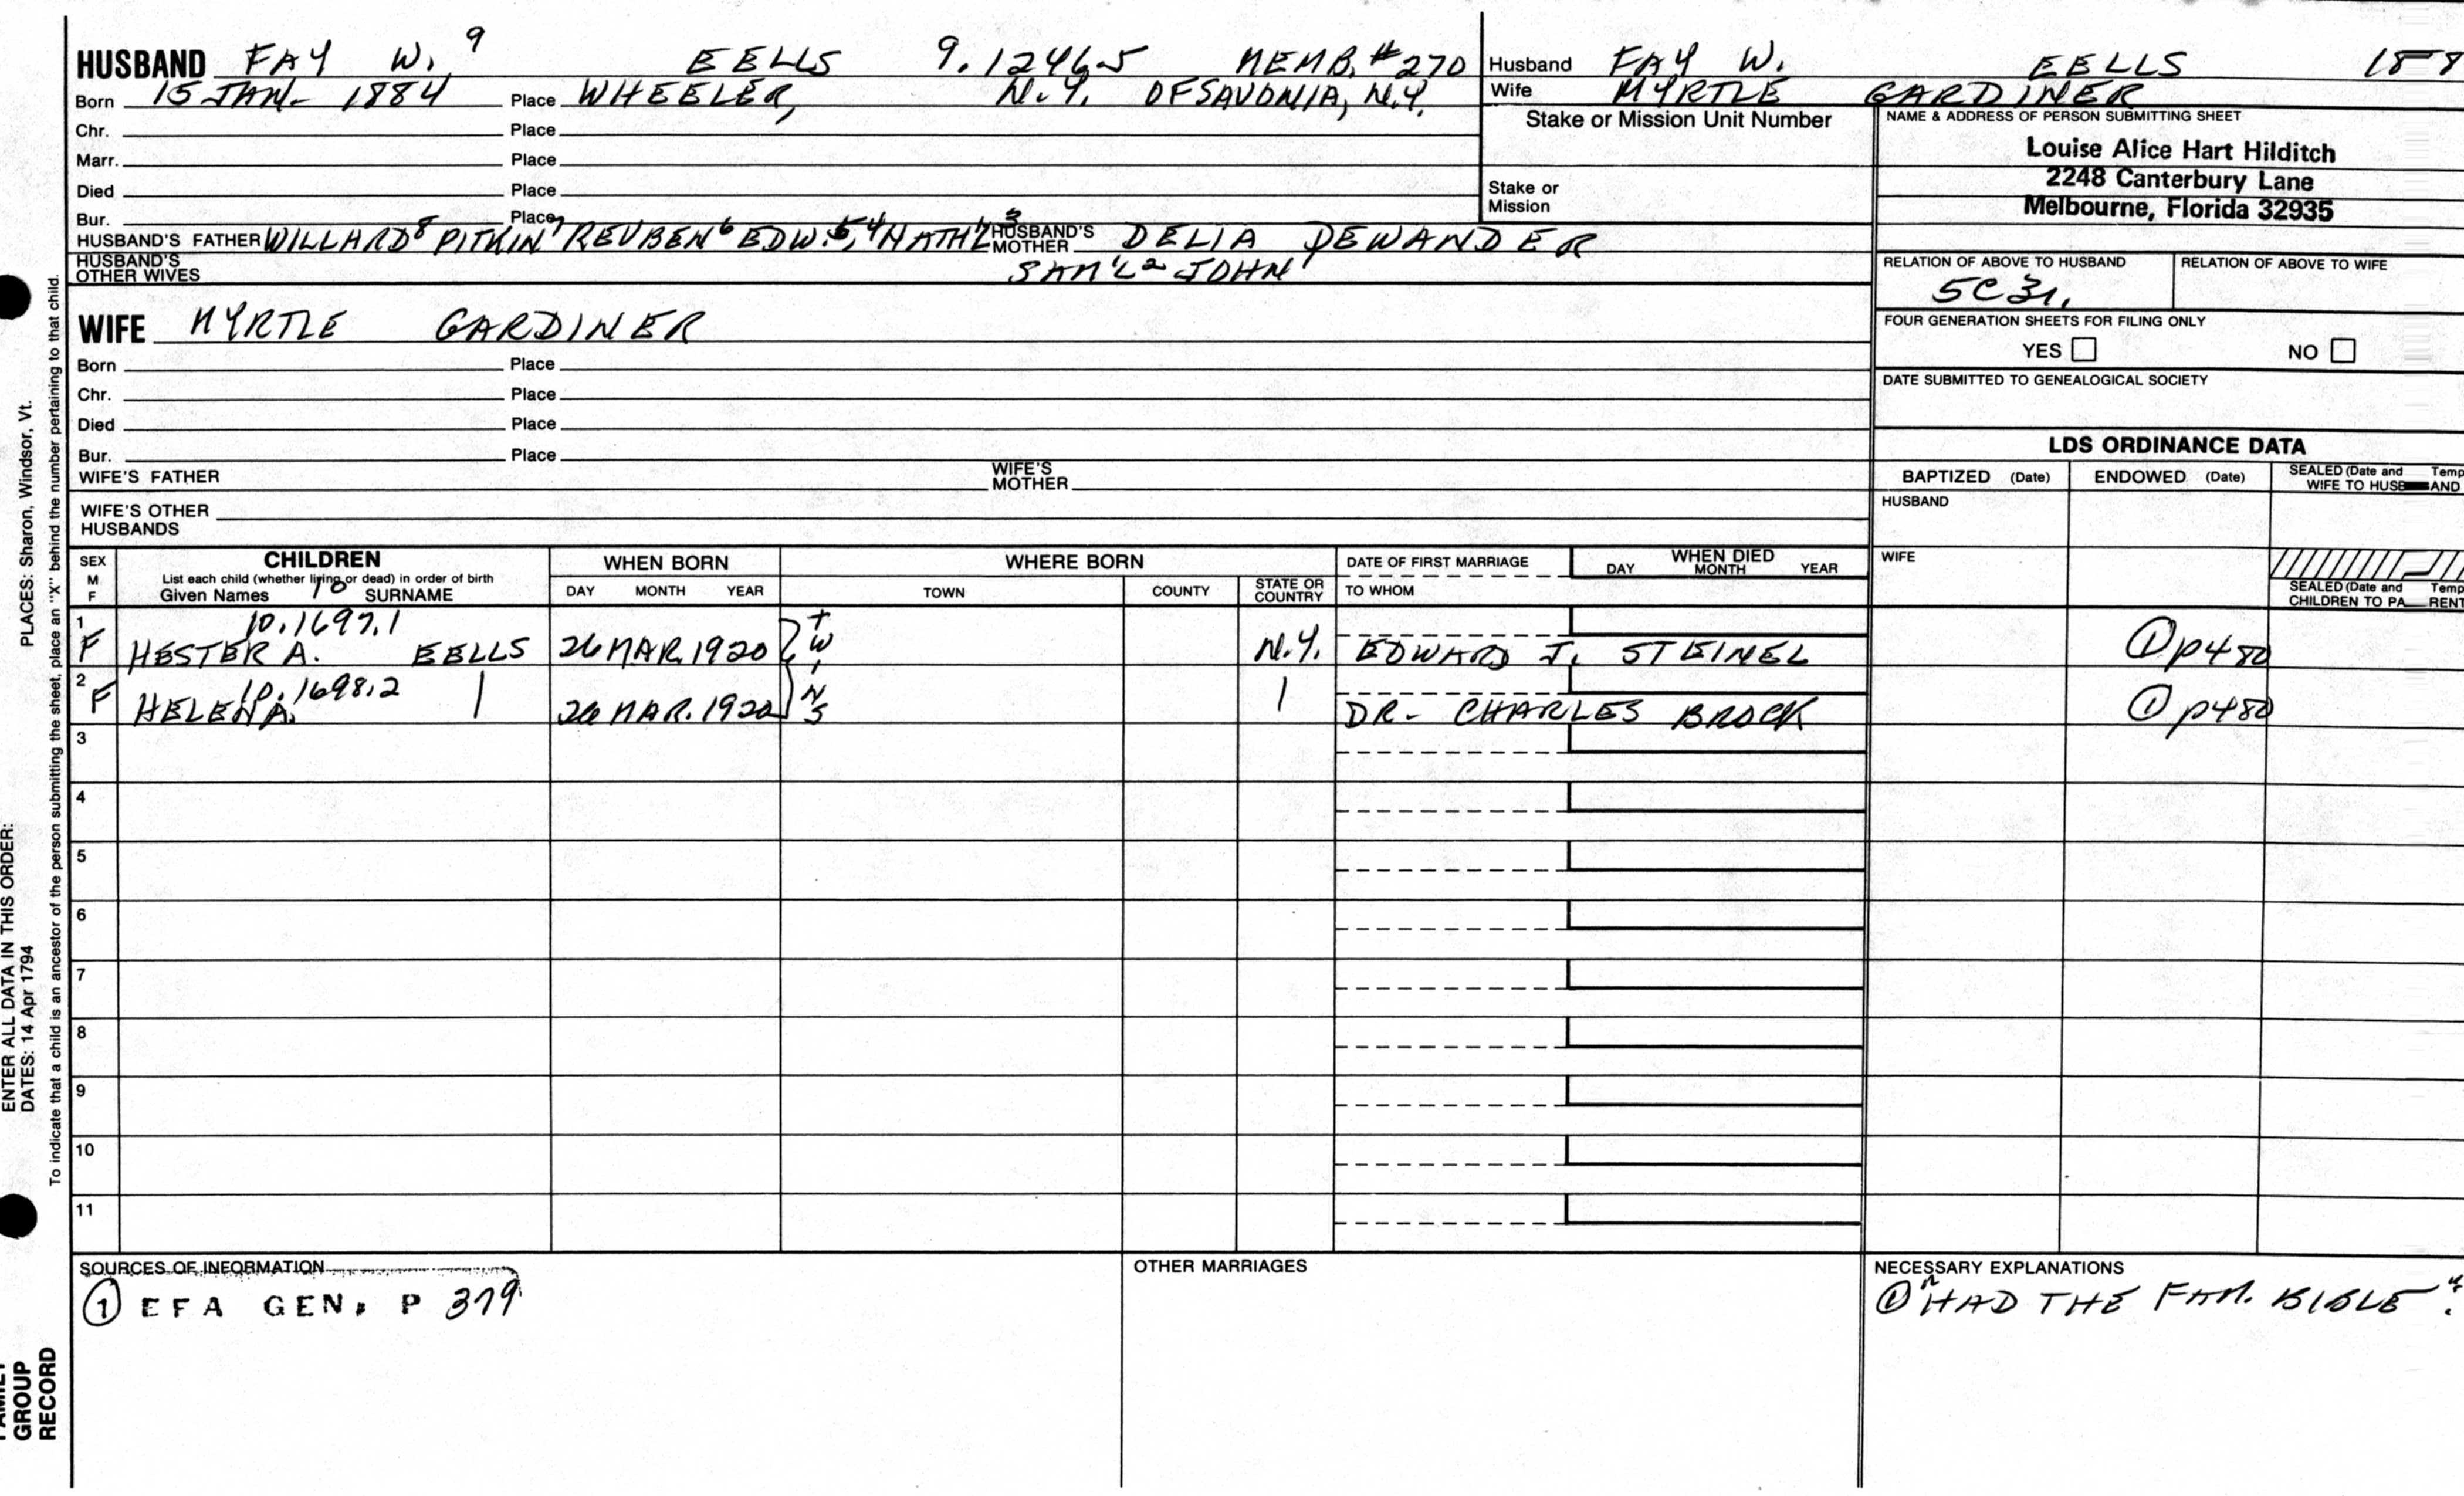 HUSBAND FAY W. 9 EELLS 9.1246.5 MEMB. #270
Born 15 JAN. 1884 Place WHEELER, N.Y. OF SAVONIA, N.Y.
Chr. Place
Marr. Place
Died Place
Bur. Place
HUSBAND'S FATHER WILLARD 8 PITKIN 7 REUBEN 6 EDW. 5, 4 NATH'L 3 HUSBAND'S MOTHER DELIA DEWANDER
HUSBAND'S OTHER WIVES SAM'L 2 JOHN 1
Husband FAY W. EELLS 188
Wife MYRTLE GARDINER
Stake or Mission Unit Number
Stake or Mission
NAME & ADDRESS OF PERSON SUBMITTING SHEET
Louise Alice Hart Hilditch
2248 Canterbury Lane
Melbourne, Florida 32935
RELATION OF ABOVE TO HUSBAND RELATION OF ABOVE TO WIFE
5C3r.
FOUR GENERATION SHEETS FOR FILING ONLY
YES NO
DATE SUBMITTED TO GENEALOGICAL SOCIETY
WIFE MYRTLE GARDINER
Born Place
Chr. Place
Died Place
Bur. Place
WIFE'S FATHER WIFE'S MOTHER
WIFE'S OTHER HUSBANDS
LDS ORDINANCE DATA
BAPTIZED (Date) ENDOWED (Date) SEALED (Date and Temp
WIFE TO HUSBAND
HUSBAND
WIFE
SEALED (Date and Temp
CHILDREN TO PARENT
SEX M F CHILDREN WHEN BORN WHERE BORN DATE OF FIRST MARRIAGE WHEN DIED
List each child (whether living or dead) in order of birth
Given Names 10 SURNAME DAY MONTH YEAR TOWN COUNTY STATE OR COUNTRY TO WHOM DAY MONTH YEAR
1 10.1697.1
F HESTER A. EELLS 26 MAR. 1920 TWINS N.Y. EDWARD J. STEINEL ① p480
2 10.1698.2
F HELEN A. | 26 MAR. 1920 | DR. CHARLES BROCK ① p480
3
4
5
6
7
8
9
10
11
SOURCES OF INFORMATION
① EFA GEN. P 379
OTHER MARRIAGES
NECESSARY EXPLANATIONS
① "HAD THE FAM. BIBLE".
PLACES: Sharon, Windsor, Vt.
ENTER ALL DATA IN THIS ORDER:
DATES: 14 Apr 1794
To indicate that a child is an ancestor of the person submitting the sheet, place an "X" behind the number pertaining to that child.
FAMILY
GROUP
RECORD